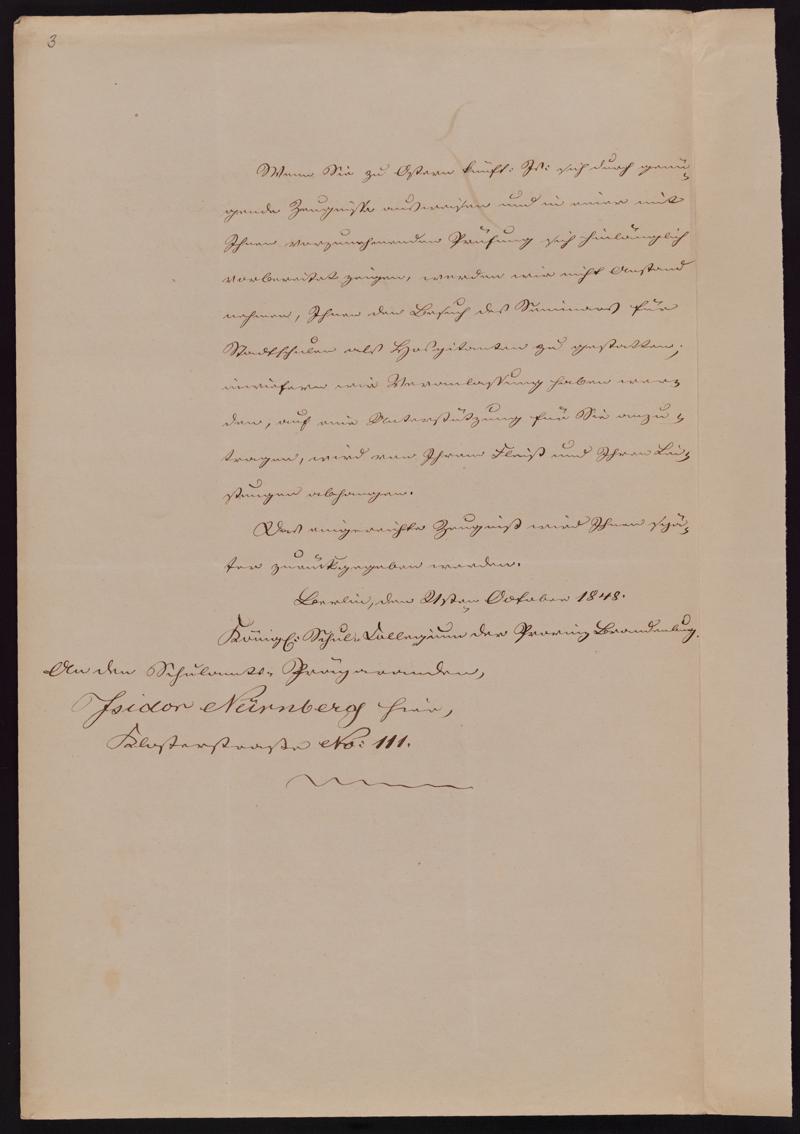 3
Wenn Sie zu Ostern künft: Js: sich durch genü-
gende Zeugnisse ausweisen und in einer mit
Ihnen vorzunehmenden Prüfung sich hinlänglich
vorbereitet zeigen, werden wir nicht Anstand
nehmen, Ihnen den Besuch des Seminars für
Stadtschulen als Hospitanten zu gestatten;
inwiefern wir Veranlassung haben wer-
den, auf eine Unterstützung für Sie anzu-
tragen, wird von Ihrem Fleiß und Ihren Lei-
stungen abhangen.
Das eingereichte Zeugniß wird Ihnen spä-
ter zurückgegeben werden.
Berlin, den 21sten October 1848.
Königl: Schul-Collegium der Provinz Brandenburg.
An den Schulamts-Präparanden,
Isidor Nürnberg hier,
Klosterstraße No: 111.